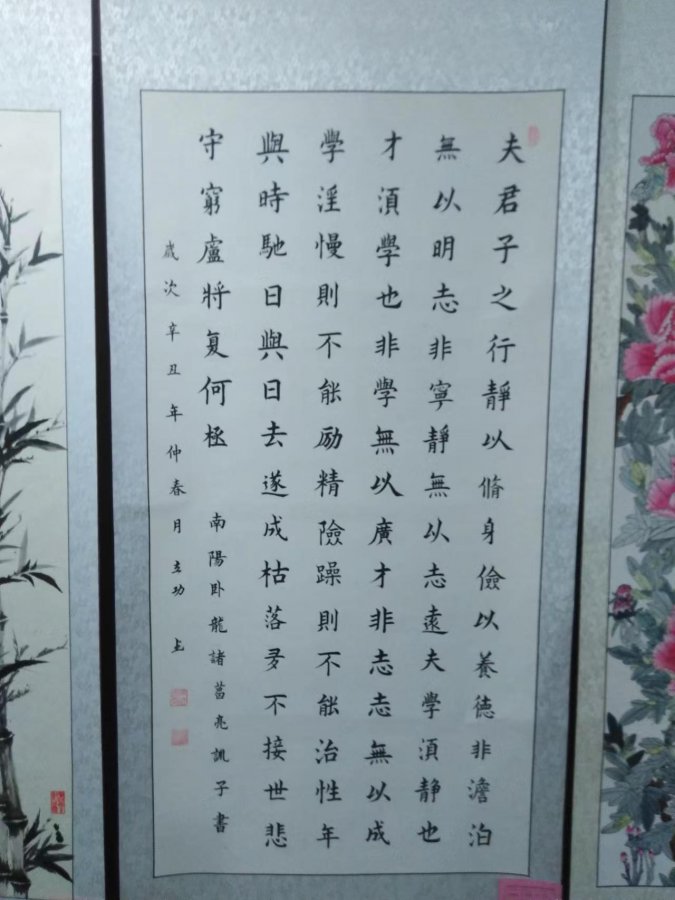 夫君子之行靜以脩身儉以養德非澹泊
無以明志非寧靜無以志遠夫學須静也
才須學也非學無以廣才非志志無以成
學淫慢則不能励精險躁則不能治性年
與時馳日與日去遂成枯落多不接世悲
守窮盧將复何極
南陽卧龍諸葛亮諷子書
歲次辛丑年仲春月立功